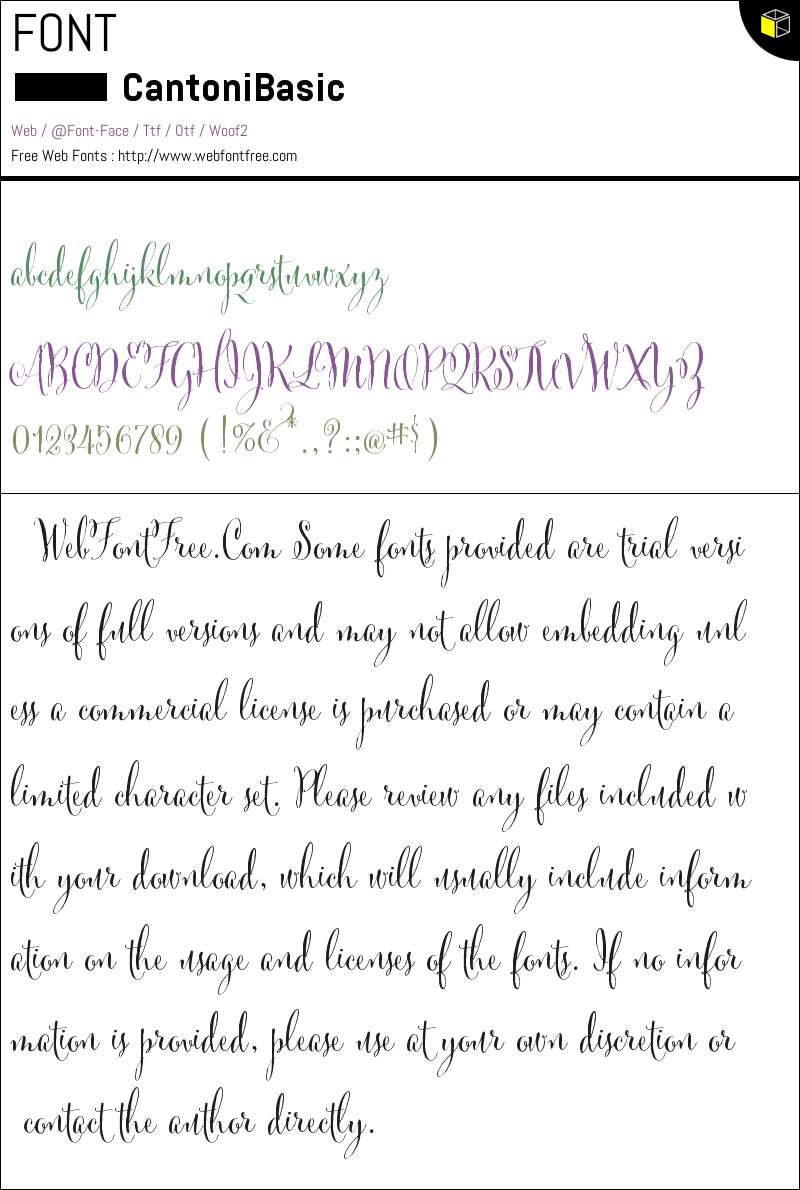 FONT
CantoniBasic
Web / @Font-Face / Ttf / Otf / Woof2
Free Web Fonts : http://www.webfontfree.com
abcdefghijklmnopqrstuvwxyz
ABCDEFGHIJKLMNOPQRSTUVWXYZ
0123456789 (!%&*.,?:;@#$)
WebFontFree.Com Some fonts provided are trial versi
ons of full versions and may not allow embedding unl
ess a commercial license is purchased or may contain a
limited character set. Please review any files included w
ith your download, which will usually include inform
ation on the usage and licenses of the fonts. If no infor
mation is provided, please use at your own discretion or
contact the author directly.